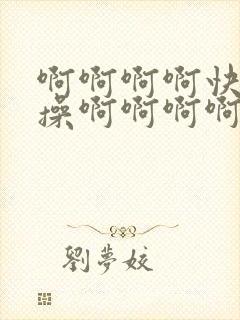 啊啊啊啊快
操啊啊啊啊
劉夢姣